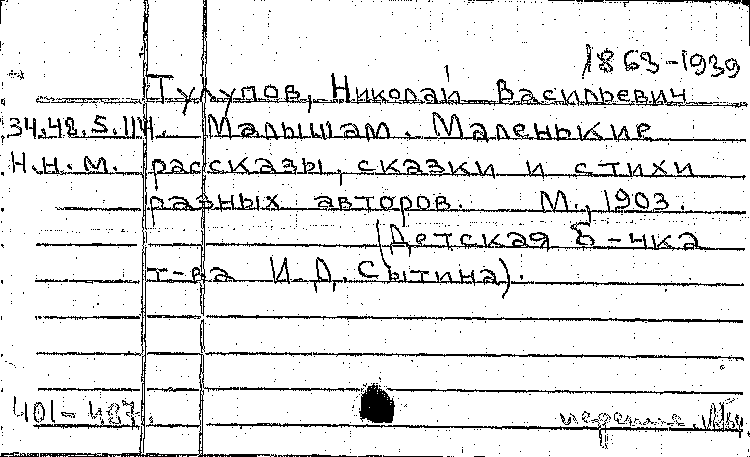 1863-1939
Тулупов, Николай Васильевич
34.48.5.114. Малышам. Маленькие
Н.Н.М. рассказы, сказки и стихи
разных авторов. М., 1903.
(Детская б-чка
т-ва И.Д. Сытина).
401-487.